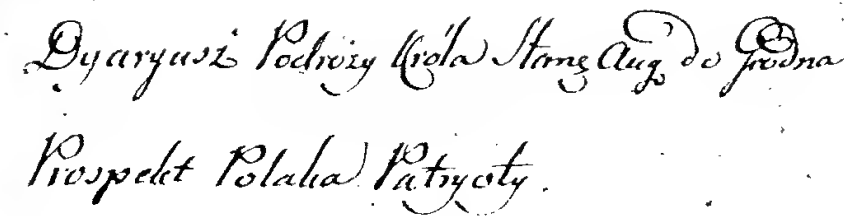 Dyaryusz Podróży Króla Stan: Aug. do Grodna
Prospekt Polaka Patryoty.